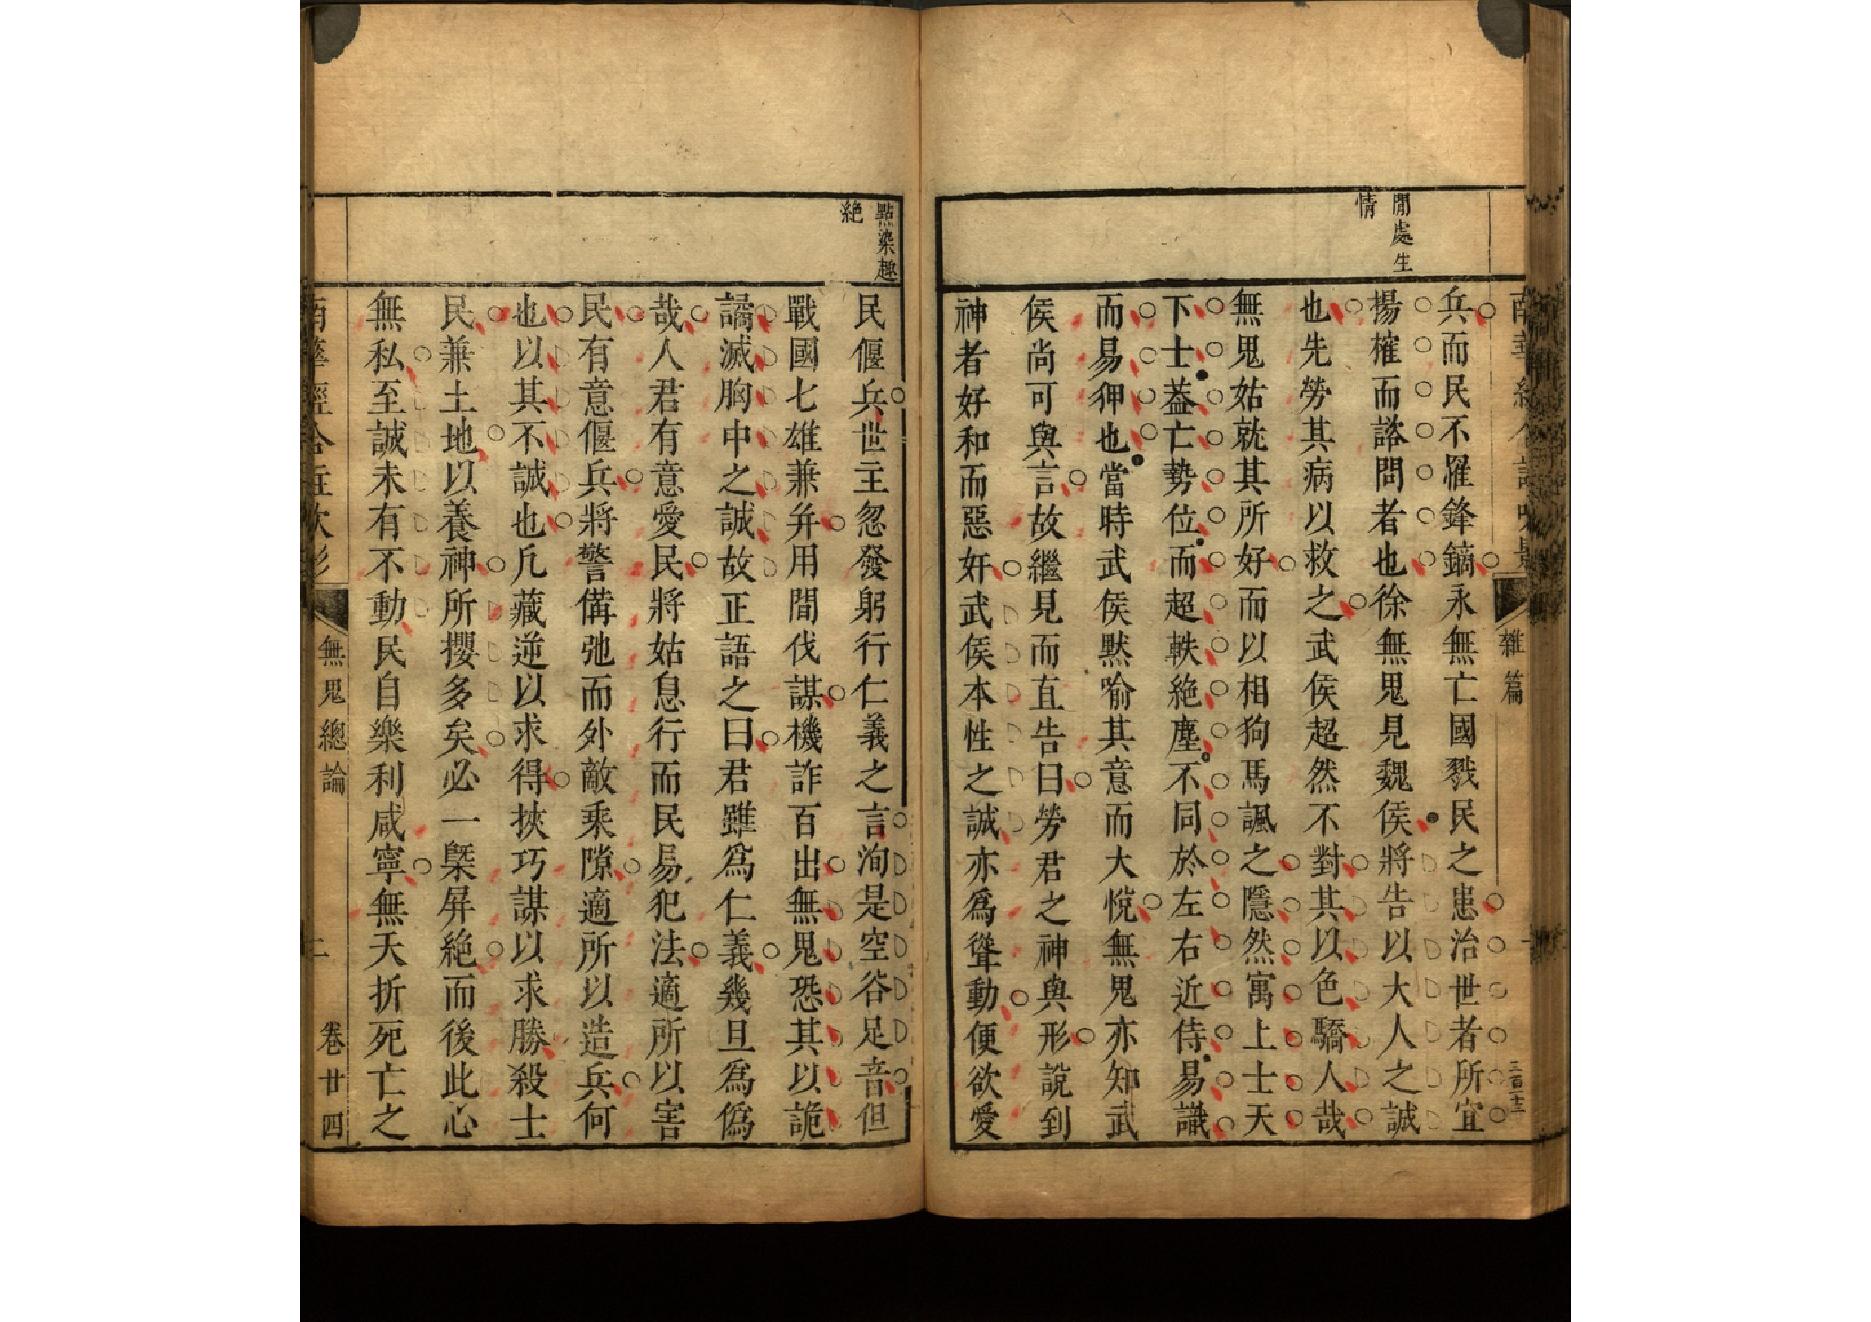 閒處生
情
兵而民不罹鋒鏑永無亡國戮民之患治世者所宜
揚榷而諮問者也徐無鬼見魏侯將告以大人之誠
也先勞其病以救之武侯超然不對其以色驕人哉
無鬼姑就其所好而以相狗馬諷之隱然寓上士天
下士葢亡勢位而超軼絶塵不同於左右近侍易識
而易狎也當時武侯黙喻其意而大悅無鬼亦知武
侯尚可與言故繼見而直告曰勞君之神與形說到
神者好和而惡奸武侯本性之誠亦爲聳動便欲愛
雜篇
點染趣
絶
民偃兵世主忽發躬行仁義之言洵是空谷足音但
戰國七雄兼并用間伐謀機詐百出無鬼恐其以詭
譎滅胸中之誠故正語之曰君雖爲仁義幾且爲偽
哉人君有意愛民將姑息行而民易犯法適所以害
民有意偃兵將警備弛而外敵乘隙適所以造兵何
也以其不誠也凡藏逆以求得挾巧謀以求勝殺士
民兼土地以養神所攖多矣必一槩屏絶而後此心
無私至誠未有不動民自樂利咸寧無夭折死亡之
無鬼總論
二
卷廿四